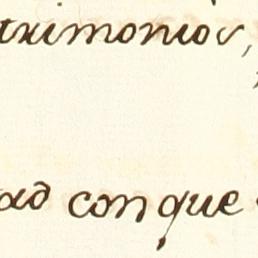 trimonios,
ad con que